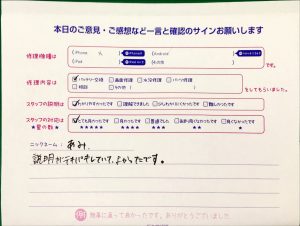 本日のご意見・ご感想など一言と確認のサインお願いします
修理機種は
iPhone
Android
iPad
その他
です。
修理内容は
バッテリー交換 画面修理 水没修理 パーツ修理
相談 その他(
)をしてもらいました。
スタッフの説明は
わかりやすかったです 理解できました 少しわかりにくかったです 難しかったです
スタッフの対応は
とても良かったです 良かったです 普通でした 良くなかったです
★星の数★
★★★★★ ★★★★ ★★★ ★★ ★
ニックネーム: あみ
説明がされていて、よかったです。
無事に直って良かったです。ありがとうございました